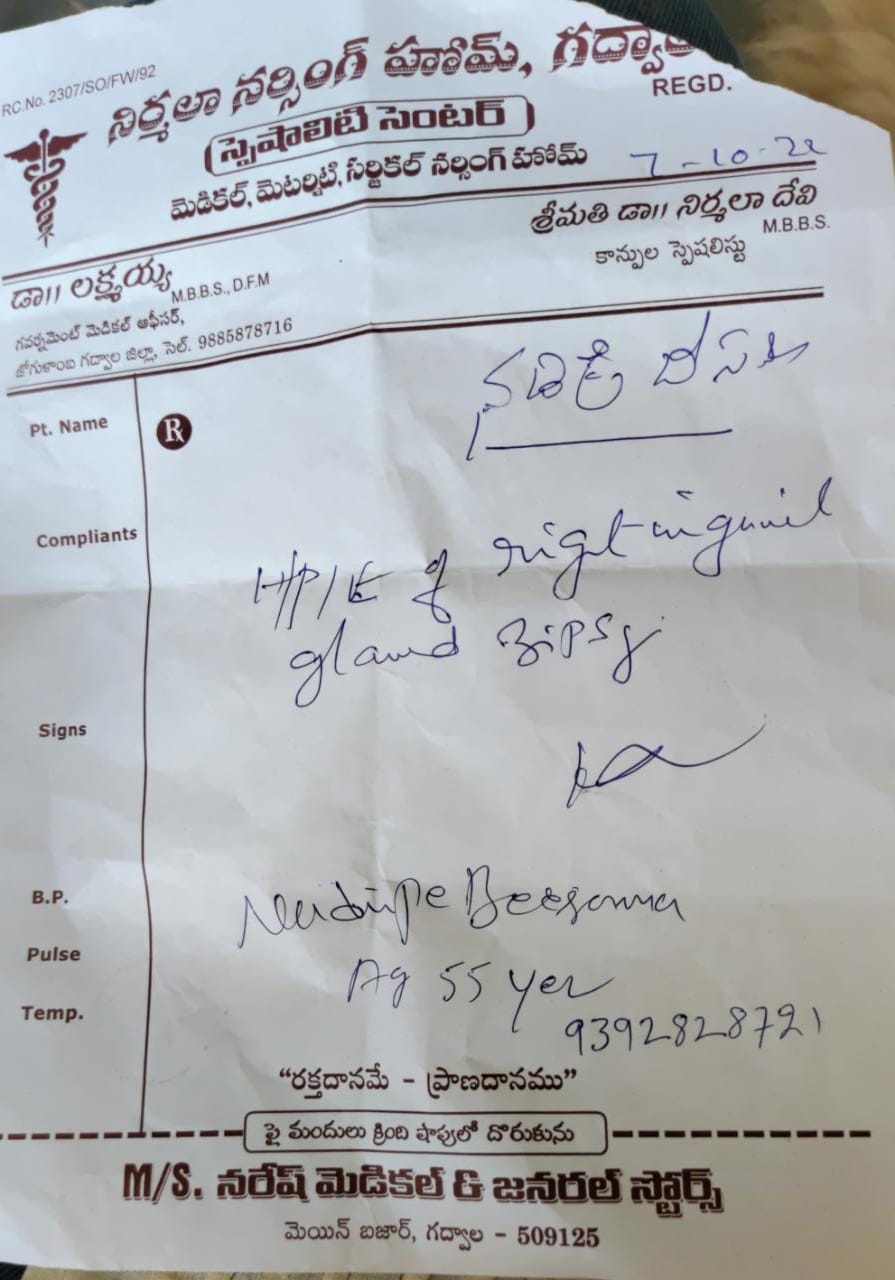 RC.No. 2307/SO/FW/92
నిర్మలా నర్సింగ్ హోమ్, గద్వాల
REGD.
(స్పెషాలిటి సెంటర్)
మెడికల్, మెటర్నిటి, సర్జికల్ నర్సింగ్ హోమ్
7-10-22
శ్రీమతి డా॥ నిర్మలా దేవి
M.B.B.S.
కాన్పుల స్పెషలిస్టు
డా॥ లక్ష్మయ్య M.B.B.S., D.F.M
గవర్నమెంట్ మెడికల్ ఆఫీసర్,
జోగుళాంబ గద్వాల జిల్లా, సెల్. 9885878716
Pt. Name
Rx
Compliants
HP/E of right inguinil
gland Bipsy
Signs
B.P.
Beesanna
Pulse
Ag 55 yer
Temp.
9392828721
"రక్తదానమే - ప్రాణదానము"
పై మందులు క్రింది షాపులో దొరుకును
M/S. నరేష్ మెడికల్ & జనరల్ స్టోర్స్
మెయిన్ బజార్, గద్వాల - 509125